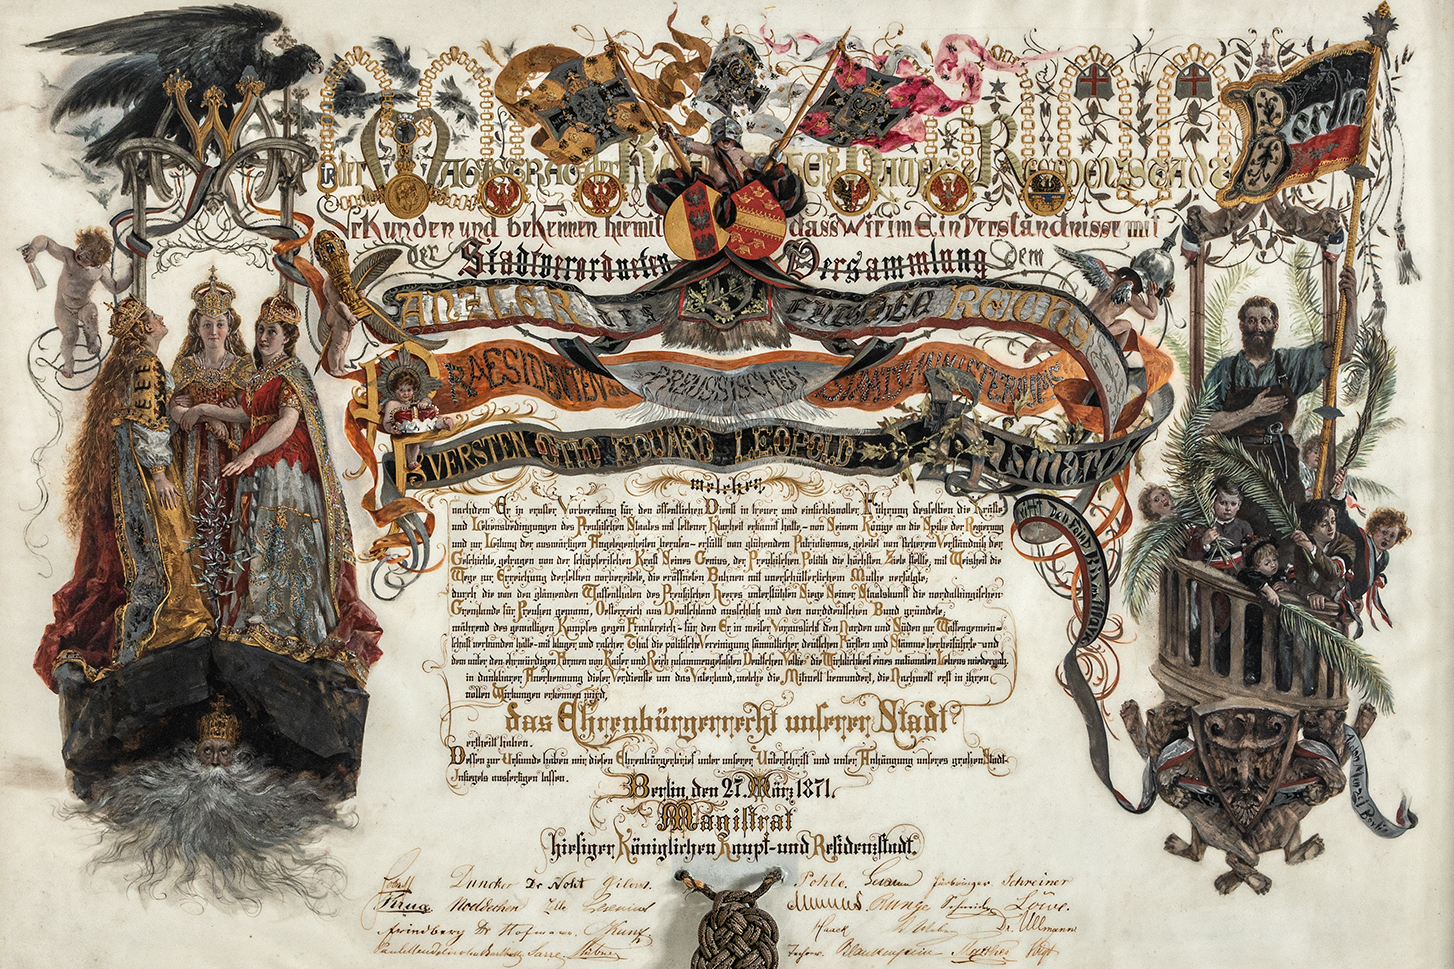 W
Berlin
Wir Magistrat der Königlichen Haupt und Residenzstadt
Urkunden und bekennen hiemit dass Wir im Einverständnisse mit
der Stadtverordneten Versammlung dem
KANZLER des DEUTSCHEN REICHS
PRAESIDENTEN des PREUSSISCHEN STAATS-MINISTERIUMS
FUERSTEN OTTO EDUARD LEOPOLD von Bismarck
welcher,
nachdem Er in ernster Vorbereitung für den öffentlichen Dienst in treuer und einsichtsvoller Führung desselben die Kräfte
und Lebensbedingungen des Preußischen Staates mit seltener Klarheit erkannt hatte, von Seinem Könige an die Spitze der Regierung
und zur Leitung der auswärtigen Angelegenheiten berufen, erfüllt von glühendem Patriotismus, geleitet von sicherem Verständniß der
Geschichte, getragen von der schöpferischen Kraft Seines Genius, der Preußischen Politik die höchsten Ziele stellte, mit Weisheit die
Wege zur Erreichung derselben vorbereitete, die eröffneten Bahnen mit unerschütterlichem Muthe verfolgte;
durch die von den glänzenden Waffenthaten des Preußischen Heeres unterstützten Siege Seiner Staatskunst die nordalbingischen
Grenzlande für Preußen gewann, Oesterreich aus Deutschland ausschloß und den norddeutschen Bund gründete;
während des gewaltigen Kampfes gegen Frankreich - für den Er in weiser Voraussicht den Norden und Süden zur Waffengemein-
schaft verbunden hatte - mit kluger und rascher That die politische Vereinigung sämmtlicher deutschen Fürsten und Stämme herbeiführte - und
dem unter den ehrwürdigen Formen von Kaiser und Reich zusammengefaßten Deutschen Volke die Wirklichkeit eines nationalen Lebens wiedergab,
in dankbarer Anerkennung dieser Verdienste um das Vaterland, welche die Mitwelt bewundert, die Nachwelt erst in ihren
vollen Wirkungen erkennen wird,
das Ehrenbürgerrecht unserer Stadt
ertheilt haben.
Dessen zur Urkunde haben wir diesen Ehrenbürgerbrief unter unserer Unterschrift und unter Anhängung unseres großen Stadt-
Insiegels ausfertigen lassen.
Berlin, den 27. März 1871.
Magistrat
hiesiger Königlichen Haupt- und Residenzstadt.
Duncker Dr Pohle Schreiner
Noeldechen Runge Löwe.
Friedberg Dr Hofmann Haack Dr. Ullmann
Sarre Blankenstein Voigt